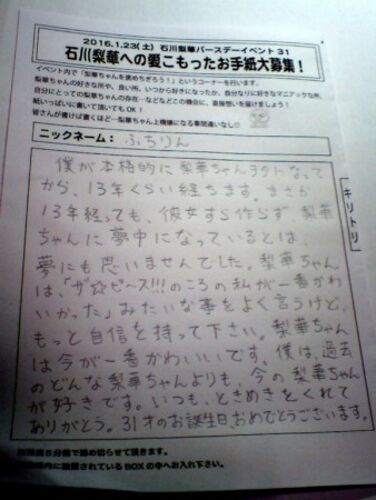 2016.1.23(土) 石川梨華バースデーイベント 31
石川梨華への愛こもったお手紙大募集！
イベント内で「梨華ちゃんを褒めちぎろう！」というコーナーを行います。
梨華ちゃんの好きな所や、良い所、いつから好きになったか、自分なりに好きなマニアックな所、
自分にとっての梨華ちゃんの存在…などなどこの機会に、直接想いを届けましょう！
紙いっぱいに書いて頂いてもOK！
皆さんが書けば書くほど…梨華ちゃん上機嫌になる事間違いなし♡
ニックネーム： ふちりん
キリトリ
僕が本格的に梨華ちゃんヲタになって
から、13年くらい経ちます。まさか
13年経っても、彼女すら作らず、梨華
ちゃんに夢中になっているとは、
夢にも思いませんでした。梨華ちゃん
は、「ザ☆ピ〜ス!!!のころの私が一番かわ
いかった」みたいな事をよく言うけど、
もっと自信を持って下さい。梨華ちゃん
は今が一番かわいいです。僕は、過去
のどんな梨華ちゃんよりも、今の梨華ちゃん
が好きです。いつも、ときめきをくれて
ありがとう。31才のお誕生日、おめでとうございます。
5分前で締め切らせて頂きます。
に設置されているBOXの中へお入れ下さい。